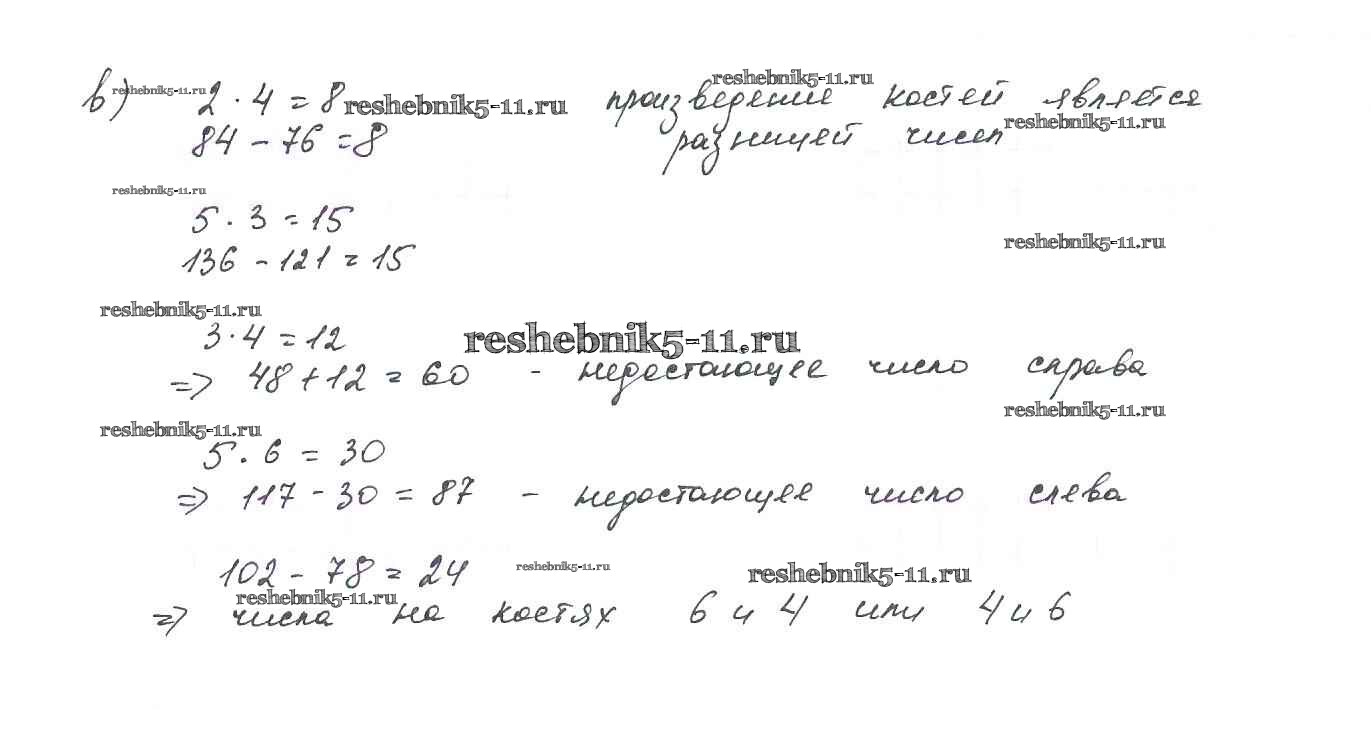 в) 2 · 4 = 8 произведение костей является
84 - 76 = 8 разницей чисел
5 · 3 = 15
136 - 121 = 15
3 · 4 = 12
=> 48 + 12 = 60 - недостающее число справа
5 · 6 = 30
=> 117 - 30 = 87 - недостающее число слева
102 - 78 = 24
=> числа на костях 6 и 4 или 4 и 6
reshebnik5-11.ru
reshebnik5-11.ru
reshebnik5-11.ru
reshebnik5-11.ru
reshebnik5-11.ru
reshebnik5-11.ru
reshebnik5-11.ru
reshebnik5-11.ru
reshebnik5-11.ru
reshebnik5-11.ru
reshebnik5-11.ru
reshebnik5-11.ru
reshebnik5-11.ru